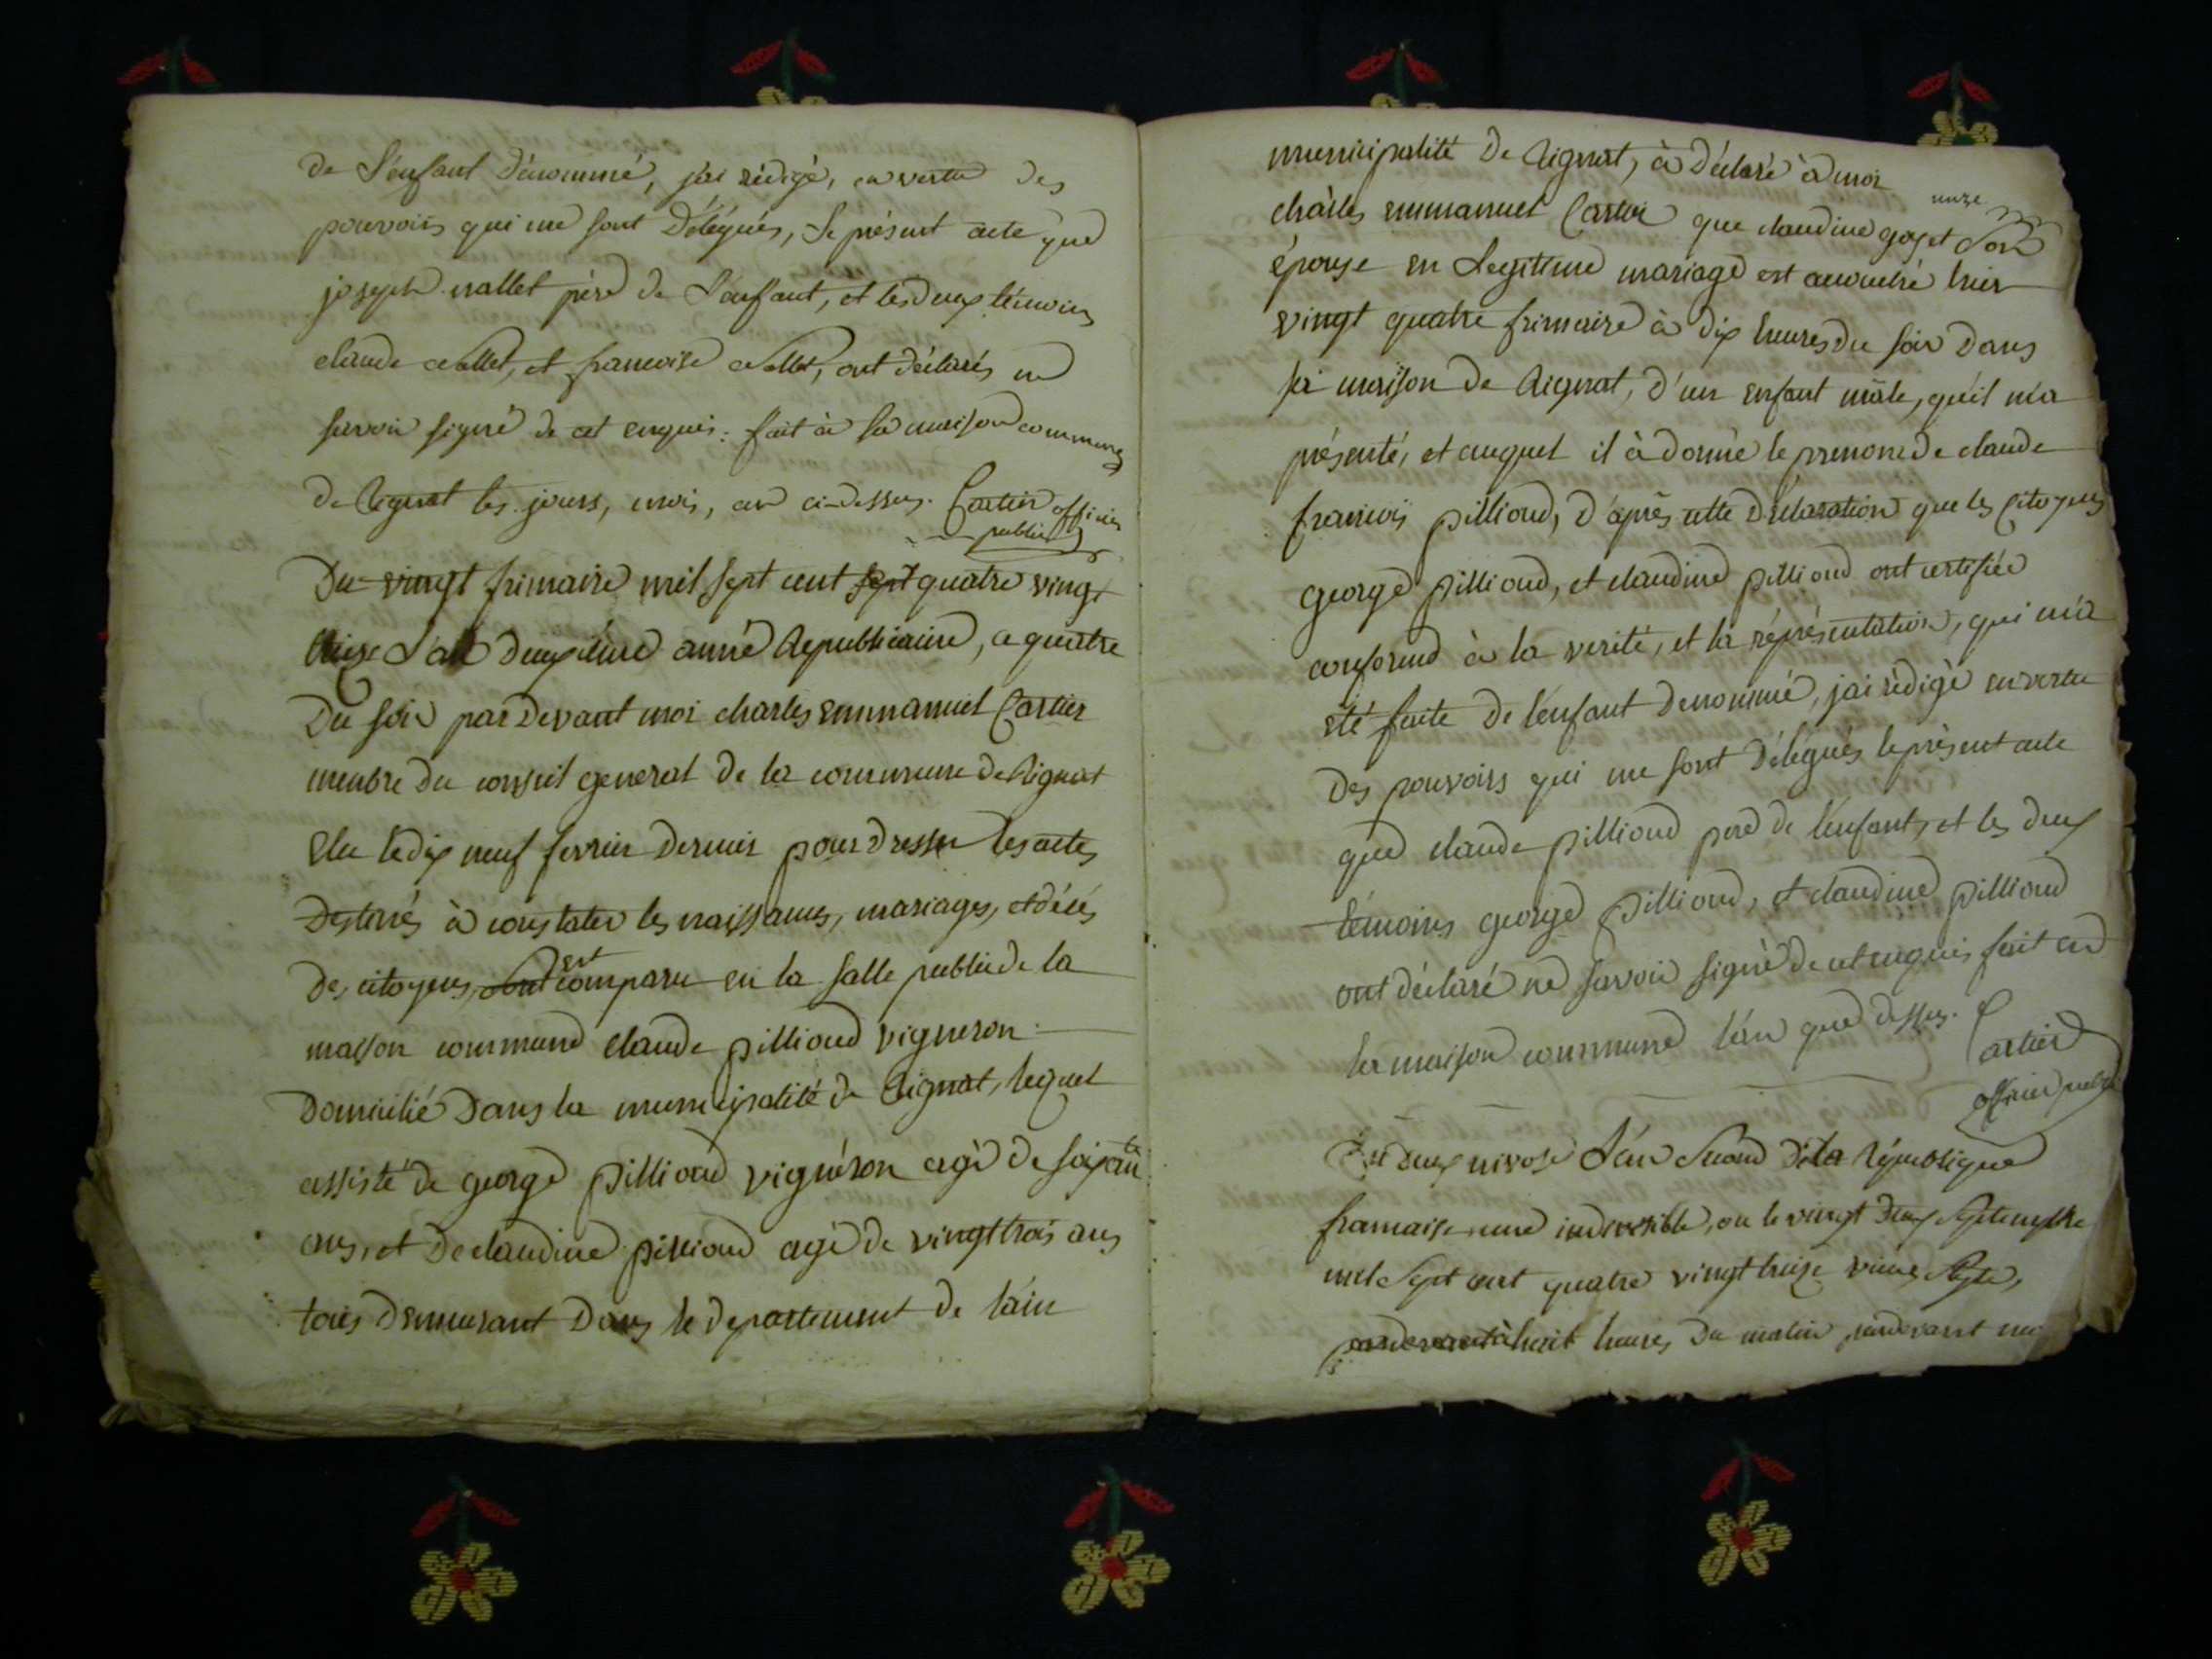 de L'enfant dénommé, j'ai rédigé, en vertu des
pouvoirs qui me sont Délégués, Le présent acte que
joseph nallet père de L'enfant, et les deux témoins
claude nallet, et francoise nallet, ont déclarés ne
savoir signé de cet enquis: fait à la maison commune
de Rignat les jours, mois, an ci-dessus. Cartier officier
public
Du vingt frimaire mil sept cent sept quatre vingt
treize L'an deuxiême année Republicaine, a quatre
Du soir par Devant moi charles emmanuel Cartier
menbre Du conseil general de la commune de Rignat
Elu le dix neuf fevrier Dernier pour dresser les actes
Destinés à constater les naissances, mariages, et décés
est
Des citoyens, sont comparu en la salle public de la
maison commune claude pillioud vigneron
Domicilié Dans la municipalité de Rignat, lequel
assisté de george pillioud vignéron agé de soixante
ans, et De claudine pillioud agé de vingt trois ans
tous Demeurant Dans le departement de l'ain
municipalité De Rignat, à déclaré à moi
charles emmanuel Cartier que claudine goyet Son
épouse en Legitime mariage est accouché hier
vingt quatre frimaire à dix heures du soir Dans
sa maison de Rignat, d'un enfant mâle, qu'il m'a
présenté, et auquel il à donné le prenom de claude
francois pillioud, D'après cette Déclaration que les Citoyens
george pillioud, et claudine pillioud ont certifiée
conforme à la verité, et la réprésentation, qui m'a
été faite De l'enfant denommé, j'ai rédigé en vertu
Des pouvoirs qui me sont Délégués le présent acte
que claude pillioud pere de l'enfant, et les deux
témoins george pillioud, et claudine pillioud
ont déclaré ne savoir signé de cet enquis fait en
la maison commune l'an que dessus. Cartier
officier public
Du deux nivose L'an Second de la République
francaise une indivisible, ou le vingt deux septembre
mil Sept cent quatre vingt treize vieux style,
pardevant à huit heures Du matin pardevant moi